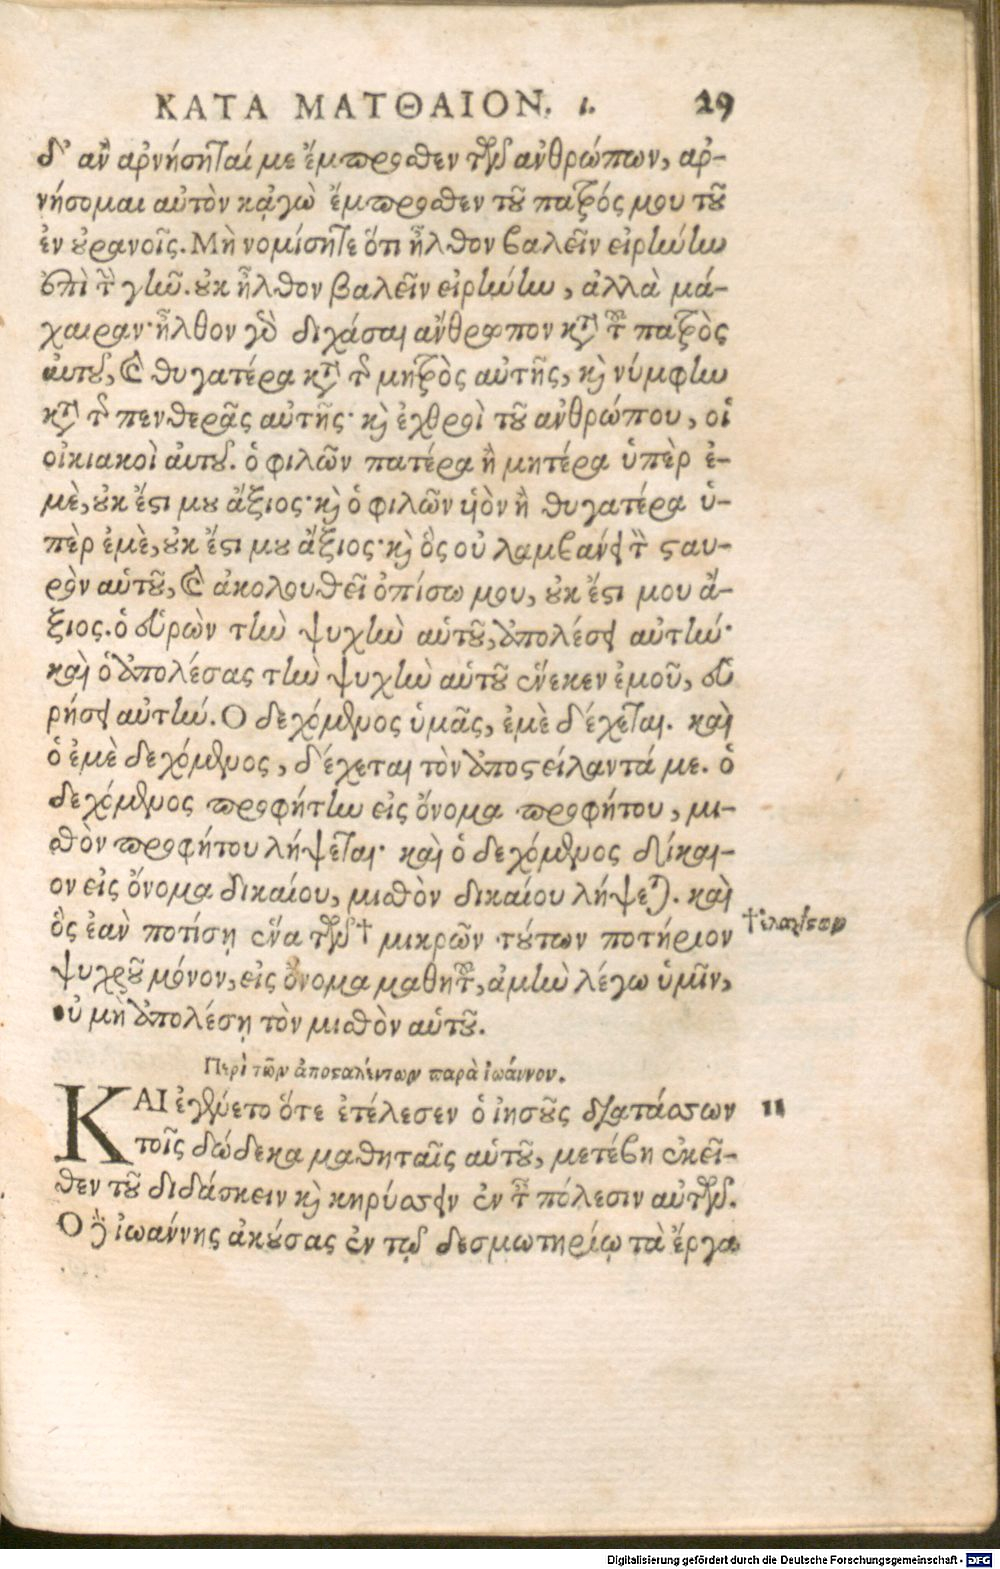 ΚΑΤΑ ΜΑΤΘΑΙΟΝ. ι. 29
δ' ἂν ἀρνήσηταί με ἔμπροσθεν τῶν ἀνθρώπων, ἀρ-
νήσομαι αὐτὸν κᾀγὼ ἔμπροσθεν τοῦ πατρός μου τοῦ
ἐν οὐρανοῖς. Μὴ νομίσητε ὅτι ἦλθον βαλεῖν εἰρήνην
ἐπὶ τὴν γῆν. οὐκ ἦλθον βαλεῖν εἰρήνην, ἀλλὰ μά-
χαιραν· ἦλθον γὰρ διχάσαι ἄνθρωπον κατὰ τοῦ πατρὸς
αὐτοῦ, καὶ θυγατέρα κατὰ τῆς μητρὸς αὐτῆς, καὶ νύμφην
κατὰ τῆς πενθερᾶς αὐτῆς· καὶ ἐχθροὶ τοῦ ἀνθρώπου, οἱ
οἰκιακοὶ αὐτοῦ. ὁ φιλῶν πατέρα ἢ μητέρα ὑπὲρ ἐ-
μὲ, οὐκ ἔστι μου ἄξιος· καὶ ὁ φιλῶν υἱὸν ἢ θυγατέρα ὑ-
πὲρ ἐμὲ, οὐκ ἔστι μου ἄξιος· καὶ ὃς οὐ λαμβάνει τὸν σταυ-
ρὸν αὑτοῦ, καὶ ἀκολουθεῖ ὀπίσω μου, οὐκ ἔστι μου ἄ-
ξιος. ὁ εὑρὼν τὴν ψυχὴν αὑτοῦ, ἀπολέσει αὐτήν·
καὶ ὁ ἀπολέσας τὴν ψυχὴν αὑτοῦ ἕνεκεν ἐμοῦ, εὑ
ρήσει αὐτήν. Ὁ δεχόμενος ὑμᾶς, ἐμὲ δέχεται. καὶ
ὁ ἐμὲ δεχόμενος, δέχεται τὸν ἀποστείλαντά με. ὁ
δεχόμενος προφήτην εἰς ὄνομα προφήτου, μι-
σθὸν προφήτου λήψεται· καὶ ὁ δεχόμενος δίκαι-
ον εἰς ὄνομα δικαίου, μισθὸν δικαίου λήψεται. καὶ
ὃς ἐὰν ποτίσῃ ἕνα τῶν † μικρῶν τούτων ποτήριον
†ἐλαχίστων
ψυχροῦ μόνον, εἰς ὄνομα μαθητοῦ, ἀμὴν λέγω ὑμῖν,
οὐ μὴ ἀπολέσῃ τὸν μισθὸν αὑτοῦ.
Περὶ τῶν ἀποσταλέντων παρὰ ἰωάννου.
ΚΑΙ ἐγένετο ὅτε ἐτέλεσεν ὁ ἰησοῦς διατάσσων 11
τοῖς δώδεκα μαθηταῖς αὑτοῦ, μετέβη ἐκεῖ-
θεν τοῦ διδάσκειν καὶ κηρύσσειν ἐν ταῖς πόλεσιν αὐτῶν.
Ὁ δὲ ἰωάννης ἀκούσας ἐν τῷ δεσμωτηρίῳ τὰ ἔργα
Digitalisierung gefördert durch die Deutsche Forschungsgemeinschaft - DFG